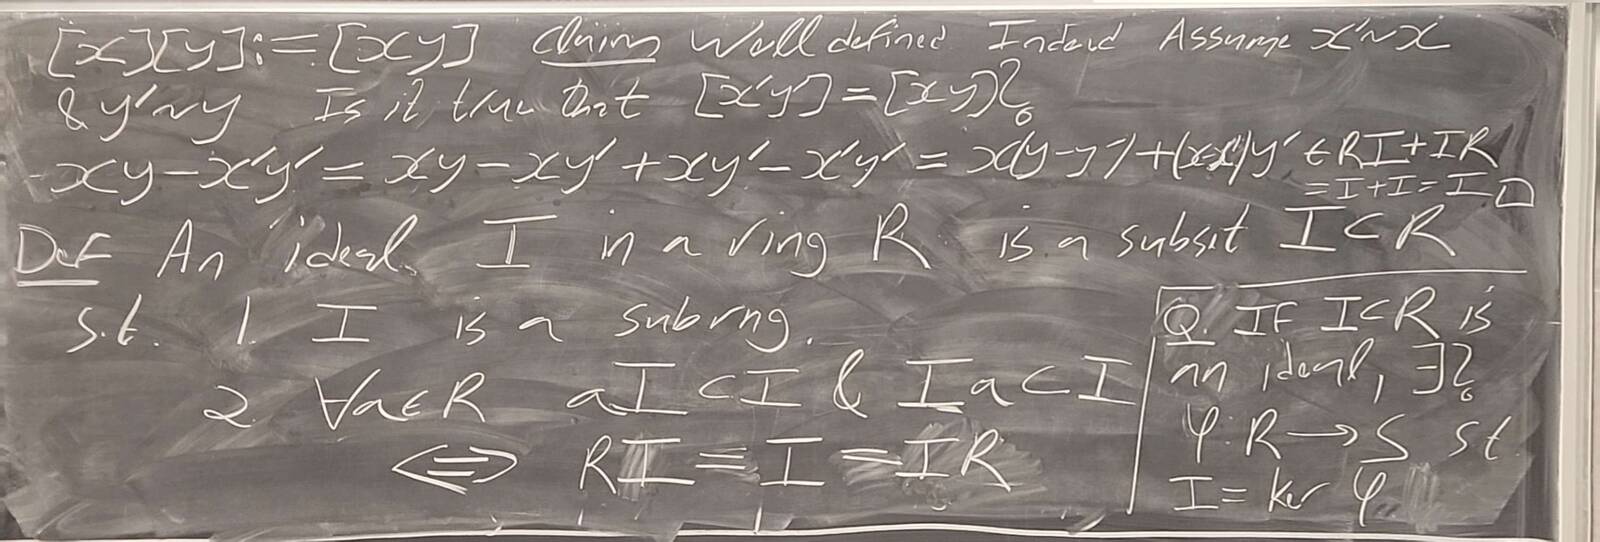 [x][y]:=[xy] claim Well defined Indeed Assume x'~x
& y'~y Is it true that [x'y']=[xy]?
xy-x'y' = xy-xy'+xy'-x'y' = x(y-y')+(x-x')y' ∈ RI+IR
=I+I=I □
Def An ideal I in a ring R is a subset I⊂R
s.t. 1. I is a subrng.
2. ∀a∈R aI⊂I & Ia⊂I
⟺ RI=I=IR
Q. IF I⊂R is
an ideal, ∃?
φ: R→S st.
I = ker φ